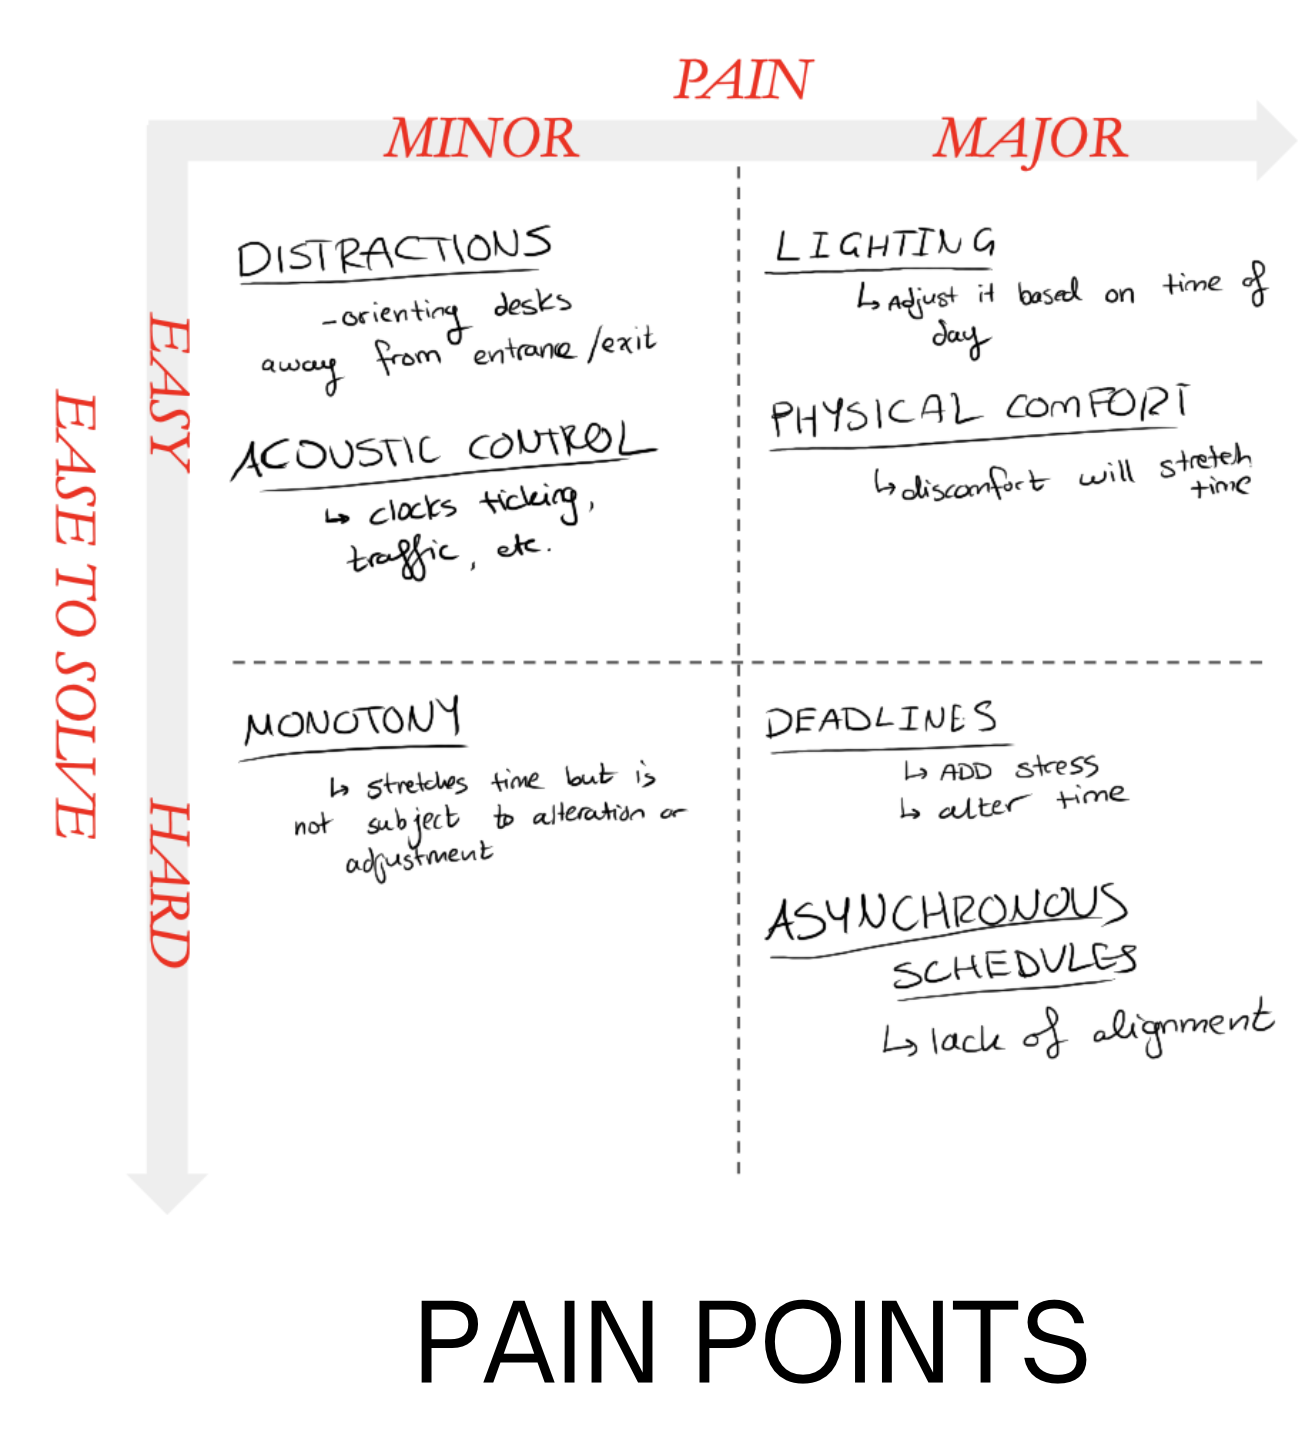 PAIN
MINOR
MAJOR
EASE TO SOLVE
EASY
DISTRACTIONS
-orienting desks
away from entrance/exit
ACOUSTIC CONTROL
↳ clocks ticking,
traffic, etc.
LIGHTING
↳ Adjust it based on time of
day
PHYSICAL COMFORT
↳ discomfort will stretch
time
HARD
MONOTONY
↳ stretches time but is
not subject to alteration or
adjustment
DEADLINES
↳ ADD stress
↳ alter time
ASYNCHRONOUS
SCHEDULES
↳ lack of alignment
PAIN POINTS